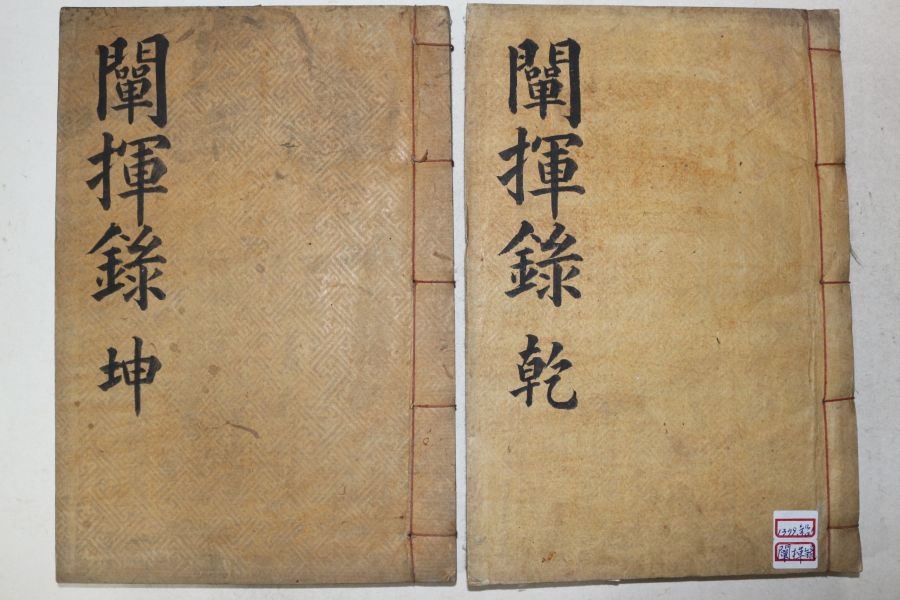 闡揮錄 乾
闡揮錄 坤
闡揮錄